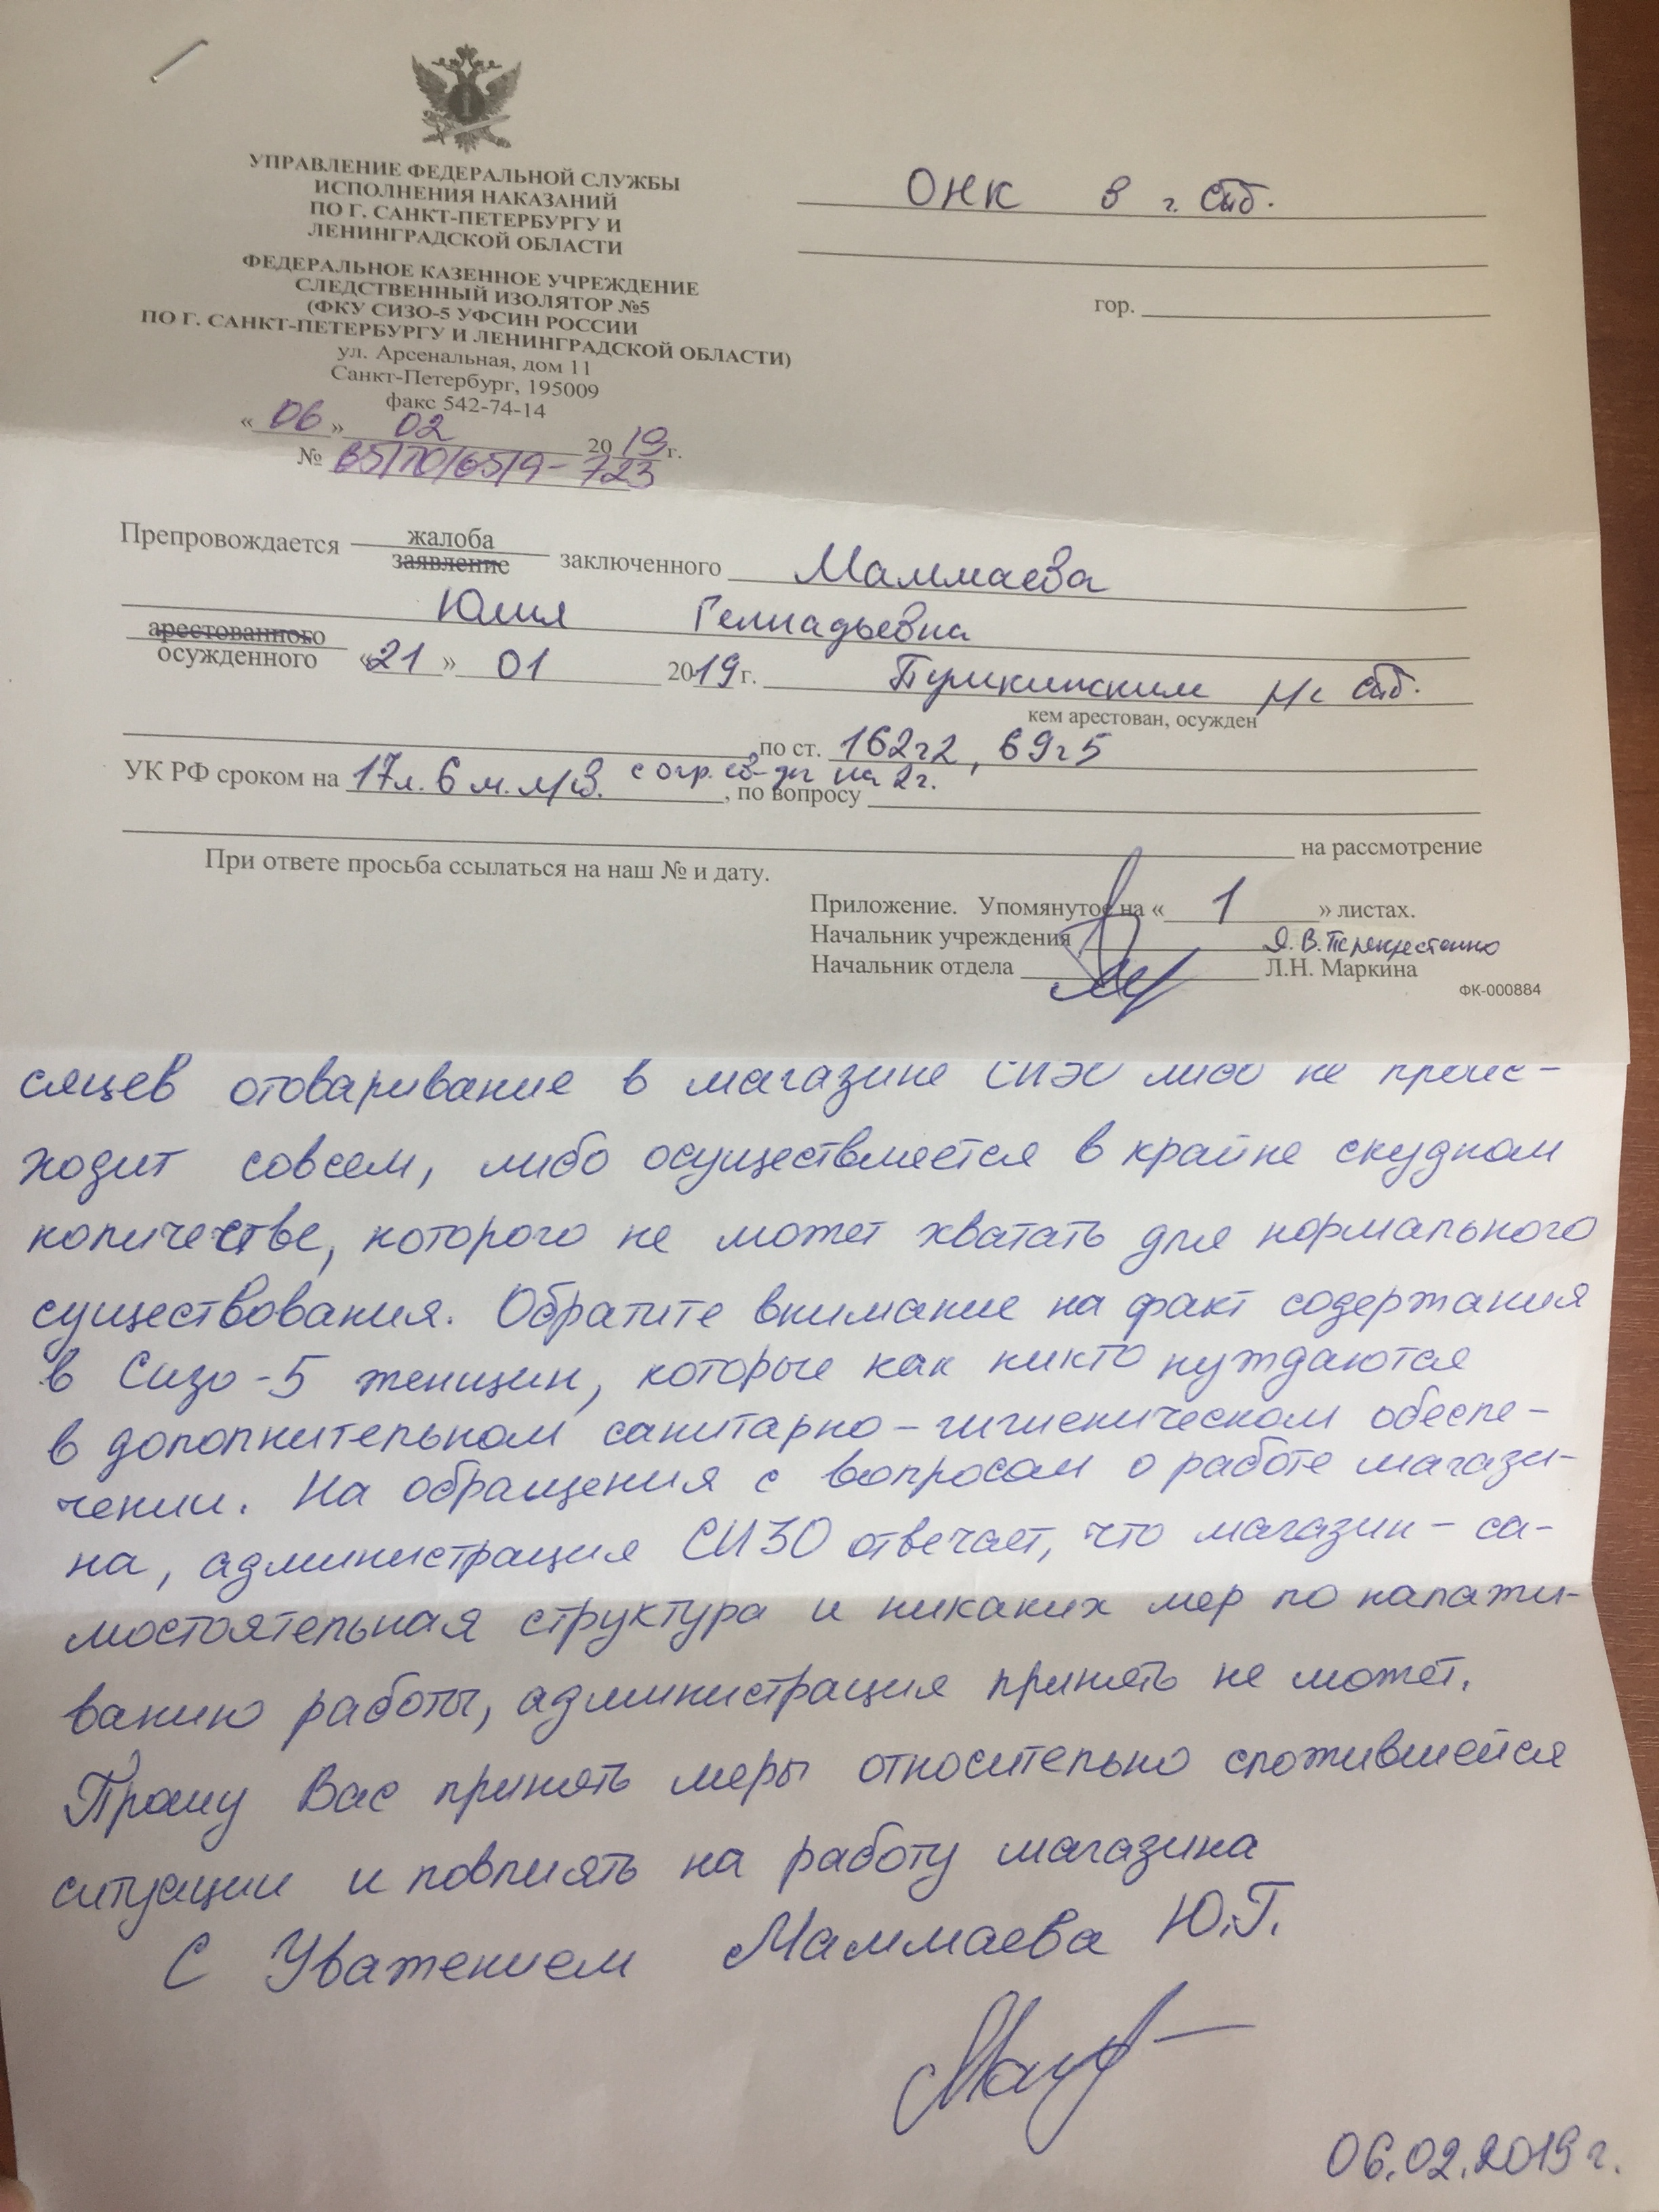 УПРАВЛЕНИЕ ФЕДЕРАЛЬНОЙ СЛУЖБЫ
ИСПОЛНЕНИЯ НАКАЗАНИЙ
ПО Г. САНКТ-ПЕТЕРБУРГУ И
ЛЕНИНГРАДСКОЙ ОБЛАСТИ
ФЕДЕРАЛЬНОЕ КАЗЕННОЕ УЧРЕЖДЕНИЕ
СЛЕДСТВЕННЫЙ ИЗОЛЯТОР №5
(ФКУ СИЗО-5 УФСИН РОССИИ
ПО Г. САНКТ-ПЕТЕРБУРГУ И ЛЕНИНГРАДСКОЙ ОБЛАСТИ)
ул. Арсенальная, дом 11
Санкт-Петербург, 195009
факс 542-74-14
«06» 02 2019 г.
№ 65/ТО/65/9-723
ОНК в г. Спб.
гор.
Препровождается жалоба заключенного Маммаева
заявление
Юлия Геннадьевна
арестованного
осужденного «21» 01 2019 г. Пушкинским р/с Спб.
кем арестован, осужден
по ст. 162ч2, 69ч5
УК РФ сроком на 17л. 6 м. л/св. с огр. св-ды на 2г., по вопросу
на рассмотрение
При ответе просьба ссылаться на наш № и дату.
Приложение. Упомянутое на «1» листах.
Начальник учреждения Я.В. Перекрестенко
Начальник отдела Л.Н. Маркина
ФК-000884
сяцев отоваривание в магазине СИЗО либо не проис-
ходит совсем, либо осуществляется в крайне скудном
количестве, которого не может хватать для нормального
существования. Обратите внимание на факт содержания
в Сизо-5 женщин, которые как никто нуждаются
в дополнительном санитарно-гигиеническом обеспе-
чении. На обращения с вопросом о работе магази-
на, администрация СИЗО отвечает, что магазин - са-
мостоятельная структура и никаких мер по налажи-
ванию работы, администрация принять не может.
Прошу Вас принять меры относительно сложившейся
ситуации и повлиять на работу магазина
С Уважением Маммаева Ю.Г.
06.02.2019г.